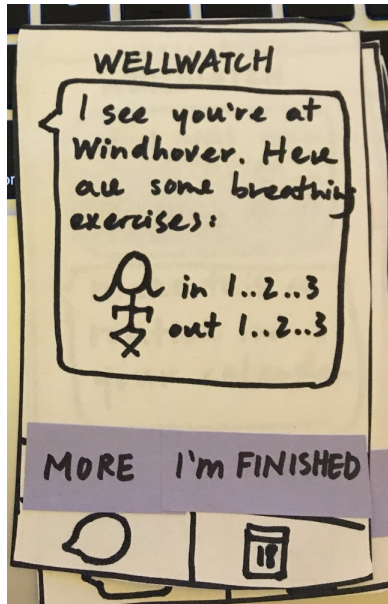 WELLWATCH
I see you're at
Windhover. Here
are some breathing
exercises:
in 1..2..3
out 1..2..3
MORE
I'm FINISHED
18